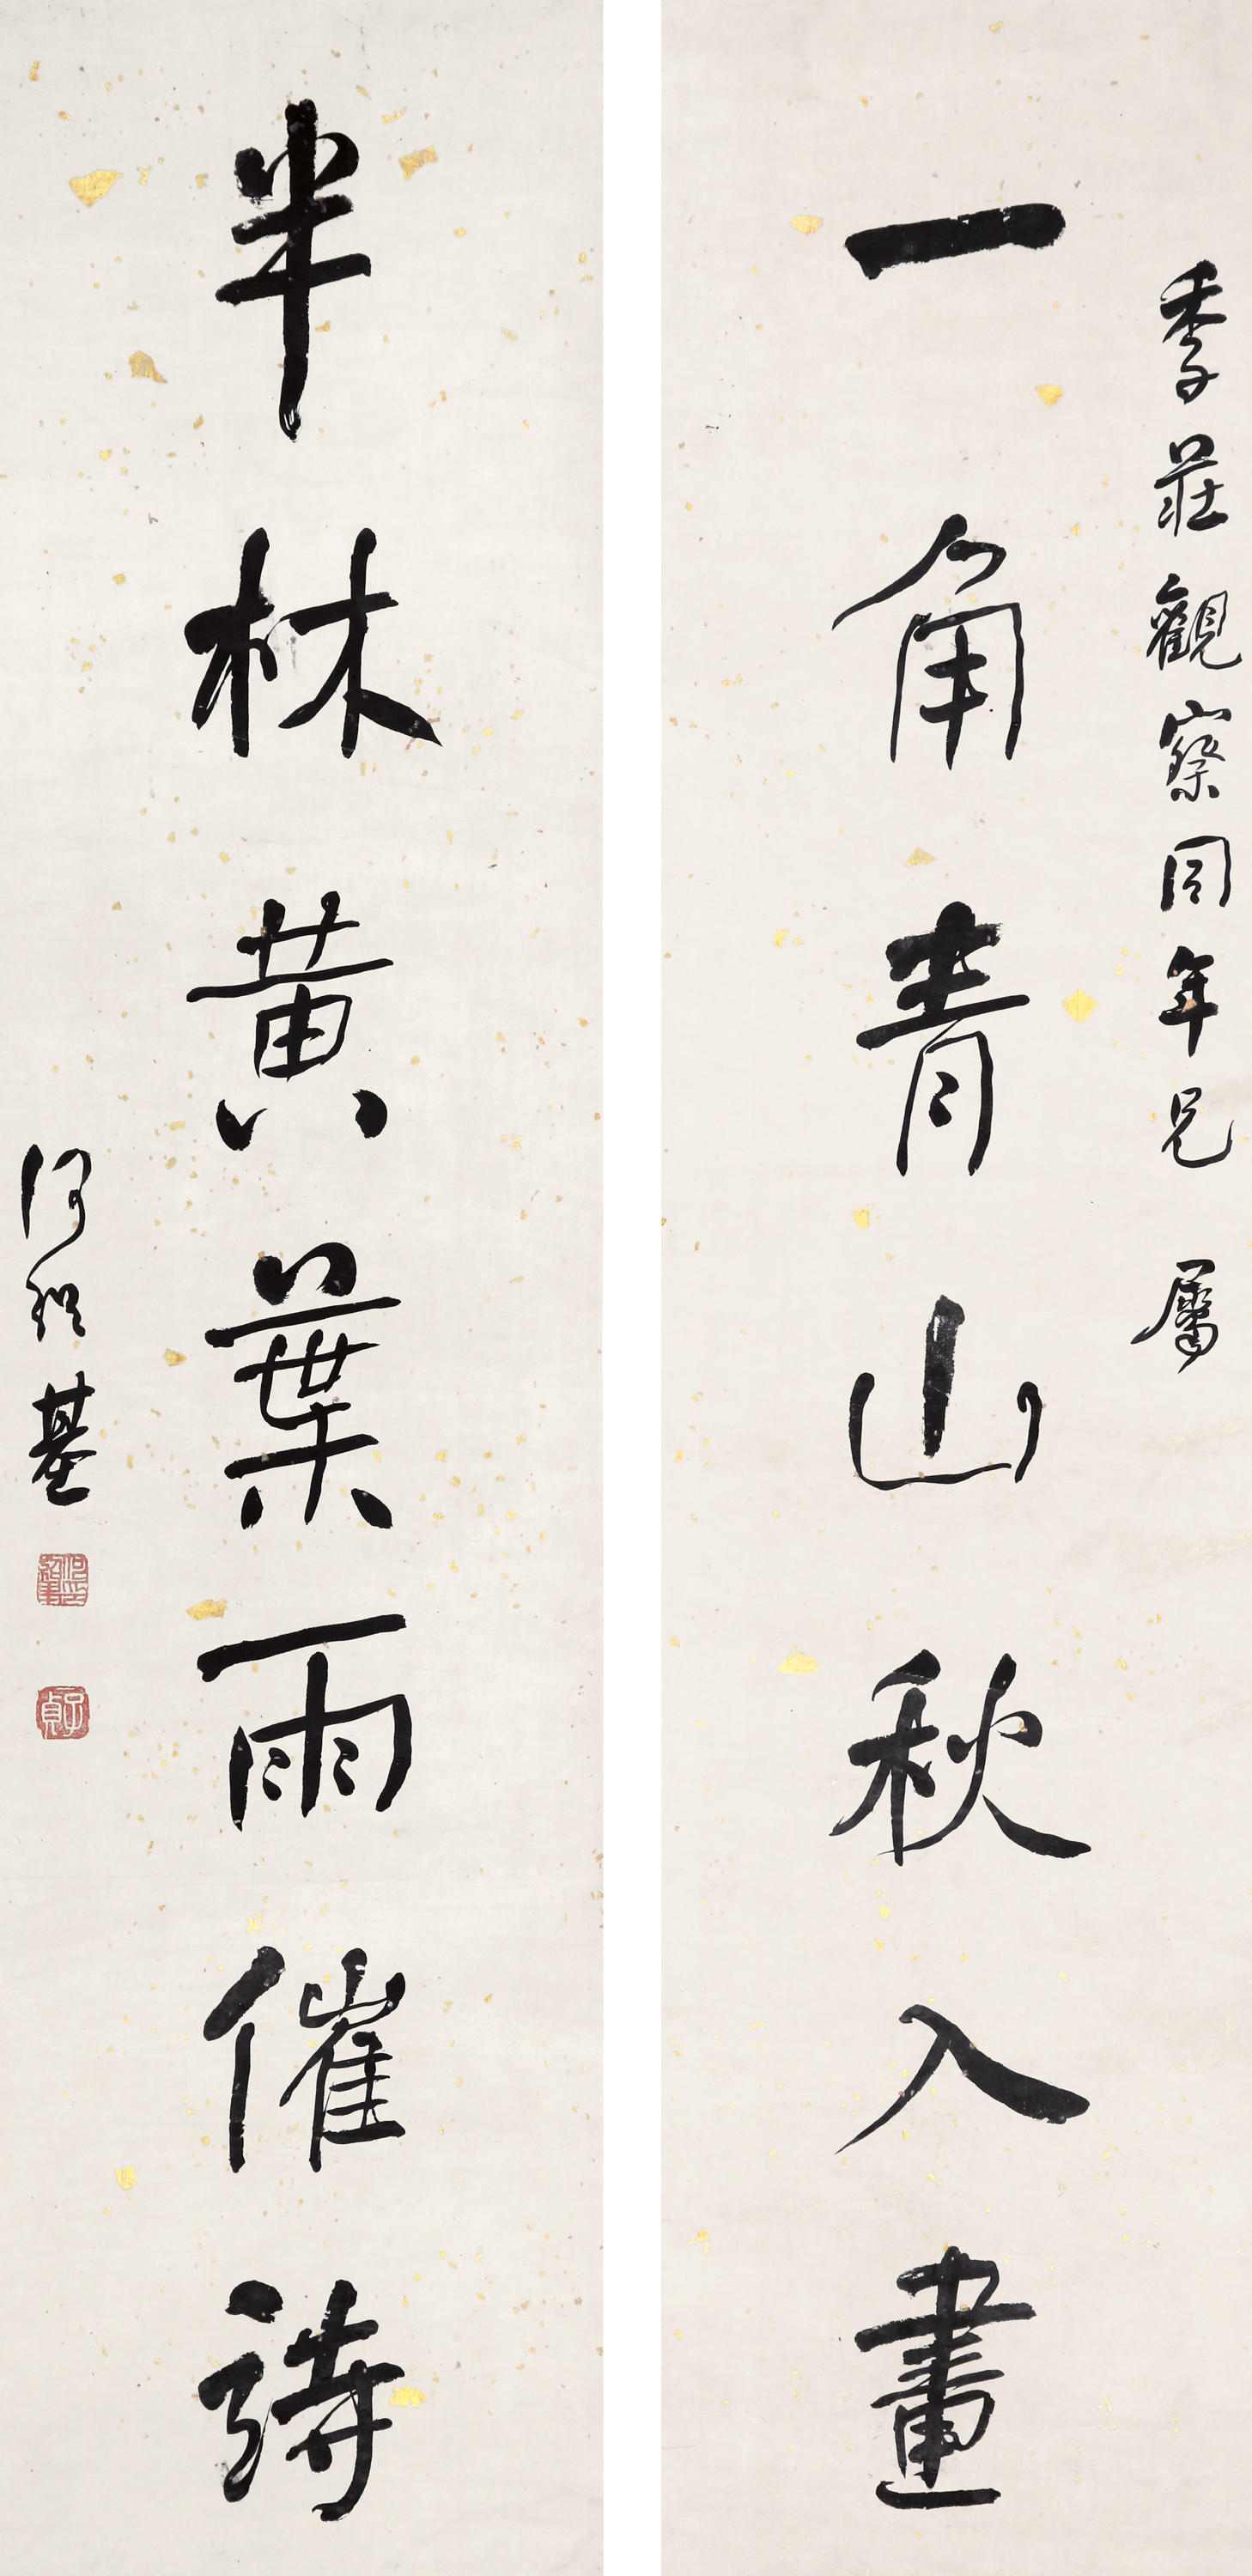 季莊觀察同年兄 屬
一角青山秋入畫
半林黃葉雨催詩
何紹基
子貞